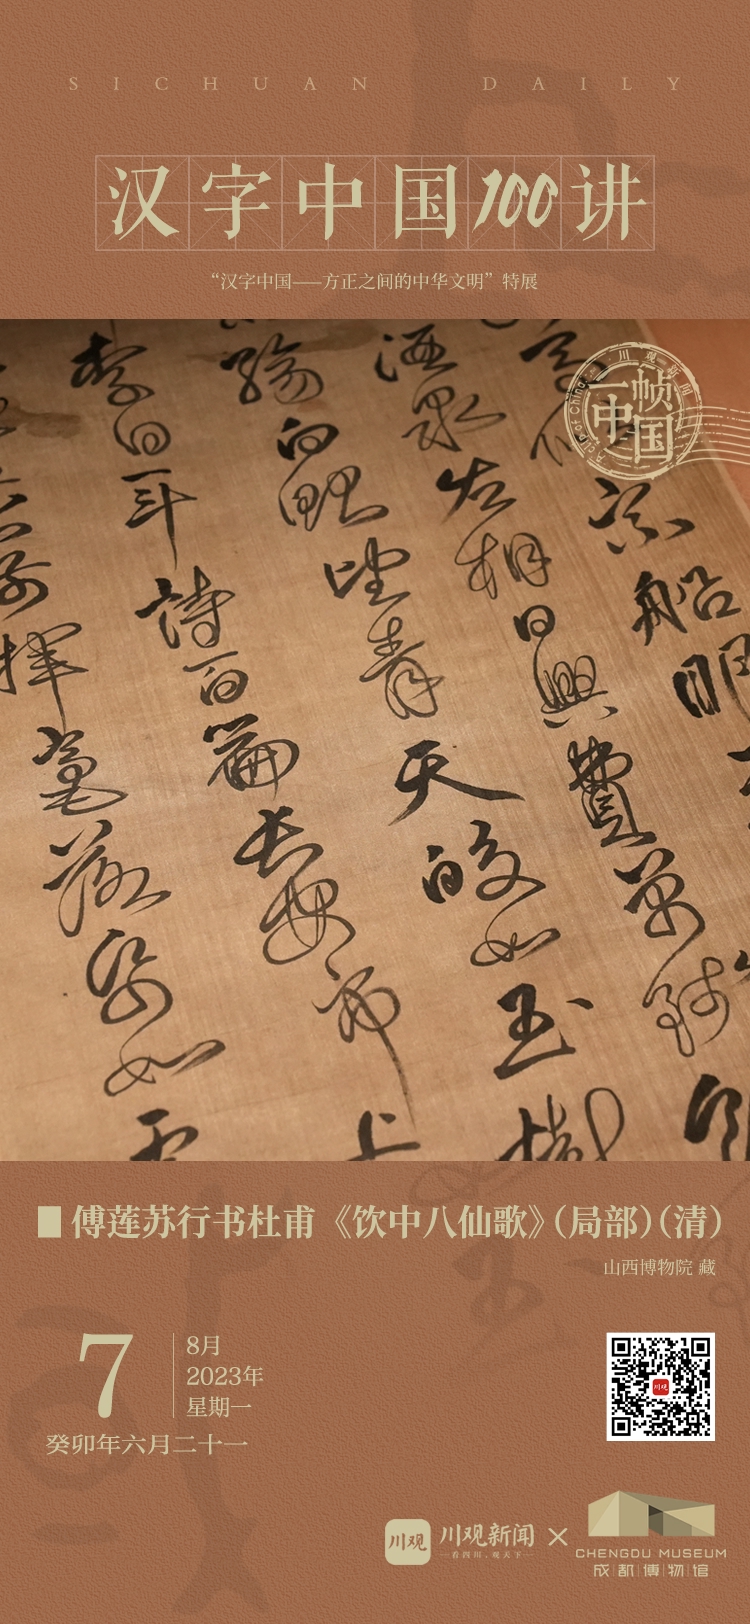 SICHUAN DAILY
汉字中国100讲
“汉字中国——方正之间的中华文明”特展
川观新闻
一帧中国
船
酒泉左相日興費萬錢
觴白眼望青天皎如玉樹
李白一斗詩百篇長安市上
前揮毫落紙如雲
傅莲苏行书杜甫《饮中八仙歌》(局部)(清)
山西博物院 藏
7
8月
2023年
星期一
癸卯年六月二十一
川观
川观新闻
—看四川,观天下—
×
CHENGDU MUSEUM
成都博物馆